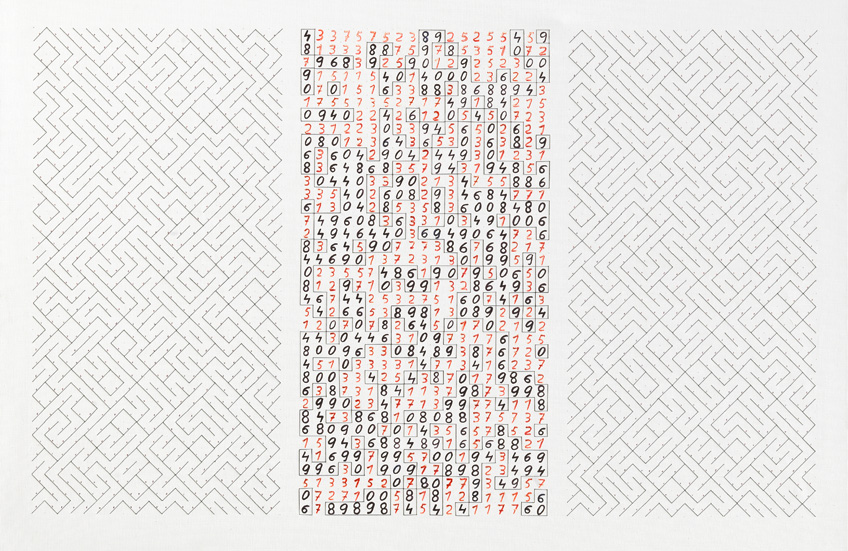 4 3 3 7 5 7 5 2 3 8 9 2 5 2 5 5 4 5 9
8 1 3 3 3 8 8 7 5 9 7 8 5 3 5 1 0 7 2
7 9 6 8 3 9 2 5 9 0 1 2 9 2 5 2 3 0 0
9 1 5 1 1 5 4 0 1 4 0 0 0 2 3 6 2 2 4
0 7 0 1 5 1 6 3 3 8 8 3 8 6 8 8 9 4 3
1 7 5 5 7 3 5 2 7 1 7 4 9 1 8 4 2 1 5
0 9 4 0 2 2 4 2 6 1 2 0 5 4 5 0 7 2 3
2 3 1 2 2 3 0 3 3 9 4 5 6 5 0 2 6 2 1
0 8 0 1 2 3 6 4 3 6 5 3 0 3 6 3 8 2 9
6 3 6 0 4 2 9 0 4 2 4 4 9 3 0 1 2 3 1
8 3 6 4 8 6 8 3 5 7 9 4 3 1 9 4 8 5 6
3 0 4 4 0 3 3 9 0 2 1 3 4 7 5 5 8 8 6
3 3 5 4 0 2 6 0 8 2 9 3 4 6 8 4 7 7 1
6 1 3 0 4 2 8 5 3 5 8 3 6 0 0 8 4 8 0
7 4 9 6 0 8 3 6 3 3 1 0 3 4 9 1 0 0 6
2 4 9 4 6 4 4 0 3 6 9 4 9 0 6 4 7 2 6
8 3 6 4 5 9 0 7 7 7 3 8 6 7 6 8 2 1 7
4 4 6 9 0 1 3 7 2 3 1 3 0 1 9 9 5 9 1
0 2 3 5 5 7 4 8 6 1 9 0 7 9 5 0 6 5 0
8 1 2 9 7 1 0 3 9 9 1 3 2 8 6 4 9 3 6
4 6 7 4 4 2 5 3 2 7 5 1 6 0 7 4 1 6 3
5 4 2 6 6 5 3 8 9 8 1 3 0 8 9 2 9 2 4
1 2 0 7 0 7 8 2 6 4 5 0 1 7 0 2 1 9 2
4 4 3 0 4 4 6 3 1 0 9 7 3 1 7 6 1 5 5
8 0 0 9 6 3 3 0 8 4 8 9 3 8 7 6 7 2 0
4 5 1 0 3 3 3 3 1 4 7 1 3 4 1 6 2 3 7
8 0 0 3 3 4 2 5 4 3 8 7 0 1 7 9 8 6 2
6 3 8 7 3 1 8 4 1 1 3 7 9 8 7 3 9 9 8
2 9 9 0 2 3 4 7 7 1 3 9 9 7 7 4 1 1 8
8 4 7 3 8 6 8 1 0 8 0 8 8 3 7 5 1 3 7
6 8 0 9 0 0 7 0 1 4 3 5 6 5 7 8 5 2 6
1 5 9 4 3 6 8 8 4 8 9 1 6 5 6 8 8 2 1
4 1 6 9 9 7 9 9 5 7 0 0 1 9 4 3 4 6 9
9 9 6 3 0 1 9 0 9 1 7 8 9 8 2 3 4 9 4
5 1 3 3 1 5 2 0 7 8 0 7 7 9 3 4 9 5 7
0 7 2 7 1 0 0 5 8 1 8 1 2 8 1 1 1 5 6
6 7 8 9 8 9 8 7 4 5 4 2 4 1 1 7 7 6 0